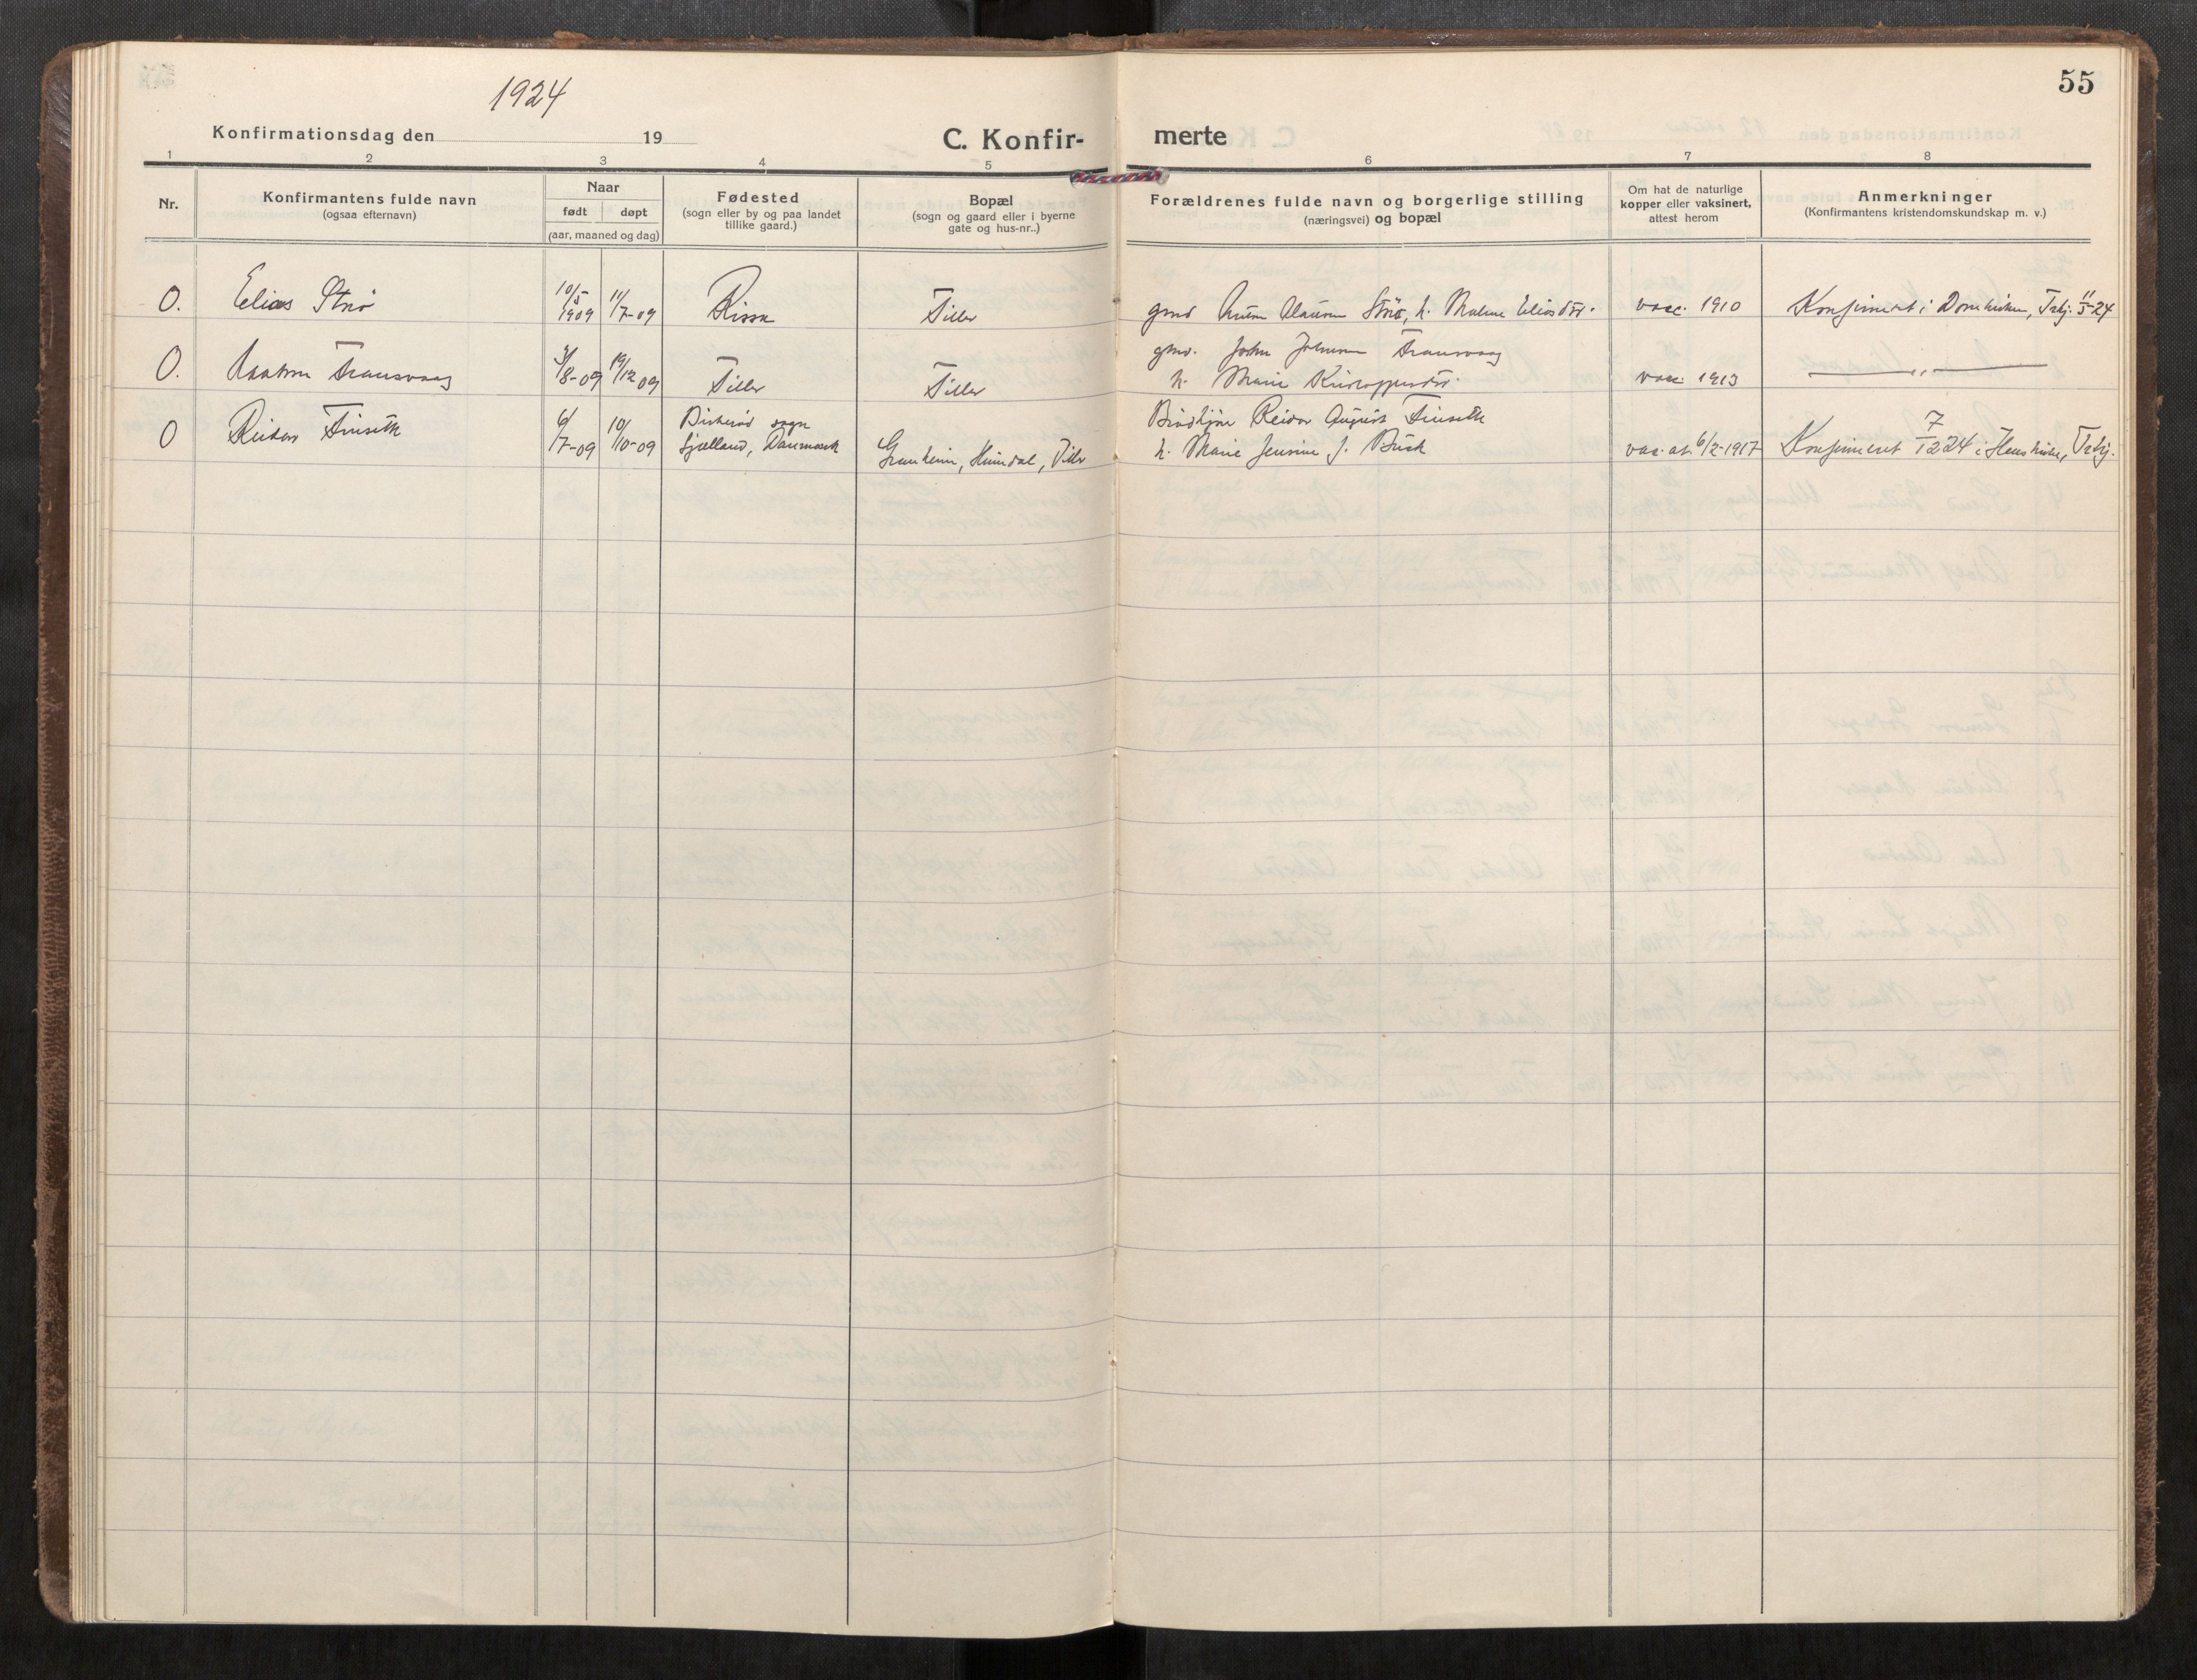 55
1924
Konfirmationsdag den 19
C. Konfir-
merte
1 2 3 4 5 6 7 8
Nr.
Konfirmantens fulde navn
(ogsaa efternavn)
Naar
født døpt
(aar, maaned og dag)
Fødested
(sogn eller by og paa landet
tillike gaard.)
Bopæl
(sogn og gaard eller i byerne
gate og hus-nr..)
Forældrenes fulde navn og borgerlige stilling
(næringsvei) og bopæl
Om hat de naturlige
kopper eller vaksinert,
attest herom
Anmerkninger
(Konfirmantens kristendomskundskap m. v.)
O. Elias Strø 10/5 1909 11/7-09 Rissa Tiller gmd Strö, h. Eliasdtr. vacc. 1910 Konfirmert i Domkirken, Trhj. 11/5-24
gmd. John Johnsen Transvaag
O. Haakon Transvaag /8-09 19/12 09 Tiller Tiller h. Marie vacc 1913 — " —
O Reidar Finseth 6/7-09 10/10-09 Birkerød sogn
Sjælland, Danmark Granheim, Heimdal, Tiller Reidar August Finseth
h. Marie Jensine J. Buch vac. at. 6/2-1917 Konfirmeret 7/12 24 i Trhj.